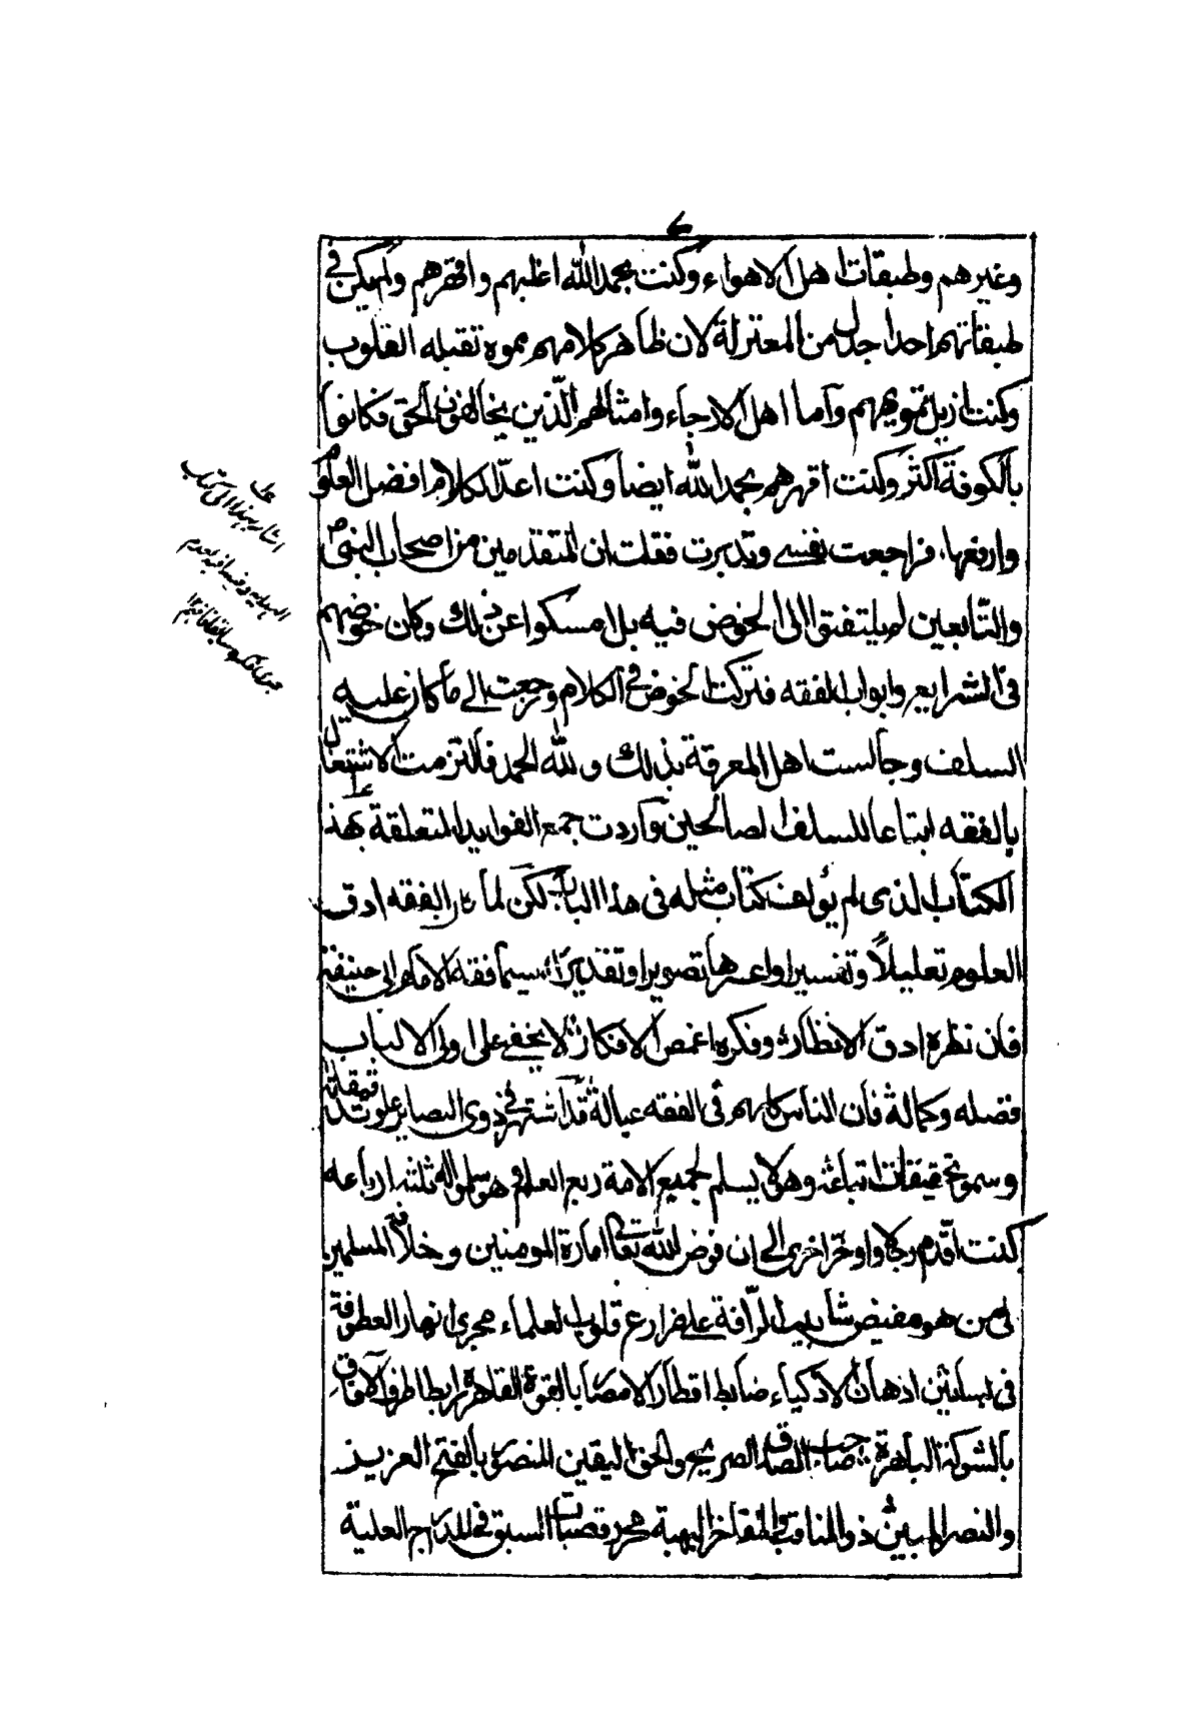 وغيرهم وطبقات اهل الاهواء وكنت بحمد الله اغلبهم واقهرهم ولم يكن في
طبقاتهم احدا جدل من المعتزلة لان ظاهر كلامهم مموه تقبله القلوب
وكنت ازيل تمويههم وآما اهل الارجاء وامثالهم الّذين يخالفون الحق فكانوا
بالكوفة اكثر وكنت اقهرهم بحمد الله ايضا وكنت اعدّ الكلام افضل العلوم
وارفعها، فراجعت نفسي وتدبرت فقلت ان المتقدمين من اصحاب النبي ص
والتّابعين لم يتفق الى الخوض فيه بل امسكوا عن ذلك وكان خوضهم
في الشرايع وابواب الفقه فتركت الخوض في الكلام ورجعت الى ما كان عليه
السلف وجالست اهل المعرفة بذلك ولله الحمد فالتزمت الاشتغال
بالفقه ابتاعا للسلف الصالحين وآردت جمع الفوايد المتعلقة بهذا
الكتاب الذى لم يؤلف كتاب مثله في هذا الباب لكن لما كان الفقه ادق
العلوم تعليلاً وتفسيرا واعسرها تصويرا وتقديرا سيما فقه الامام ابى حنيفة
فان نظره ادق الانظار وفكره اغمص الافكار لا يخفى على اولى الالباب
فضله وكماله فان الناس كلهم في الفقه عياله قد آشتهر في ذوى البصاير علو تدقيقاته
وسمو تحقيقات اتباعه وهو لا يسلم لجميع الامة ربع العلم وهم سلموا له ثلثه ارباعه
كنت اقدّم رجلا واوخر اخرى الى ان فوض الله تعالى امارة المومنين وخلافة المسلمين
لمن هو مفيض شابيب الرّافة على مزارع قلوب العلماء مجرى انهار العطوفة
في بساتين اذهان الاذكياء ضابط اقطار الامصار بالقوة القاهرة رابط اطراف الآفاق
بالشوكة الباهرة صاحب الصدق الصريح والحق اليقين المنصور بالفتح العزيز
والنصر المبين ذو المناقب والمفاخر البهية محرز قصبات السبق في المدارج العلية